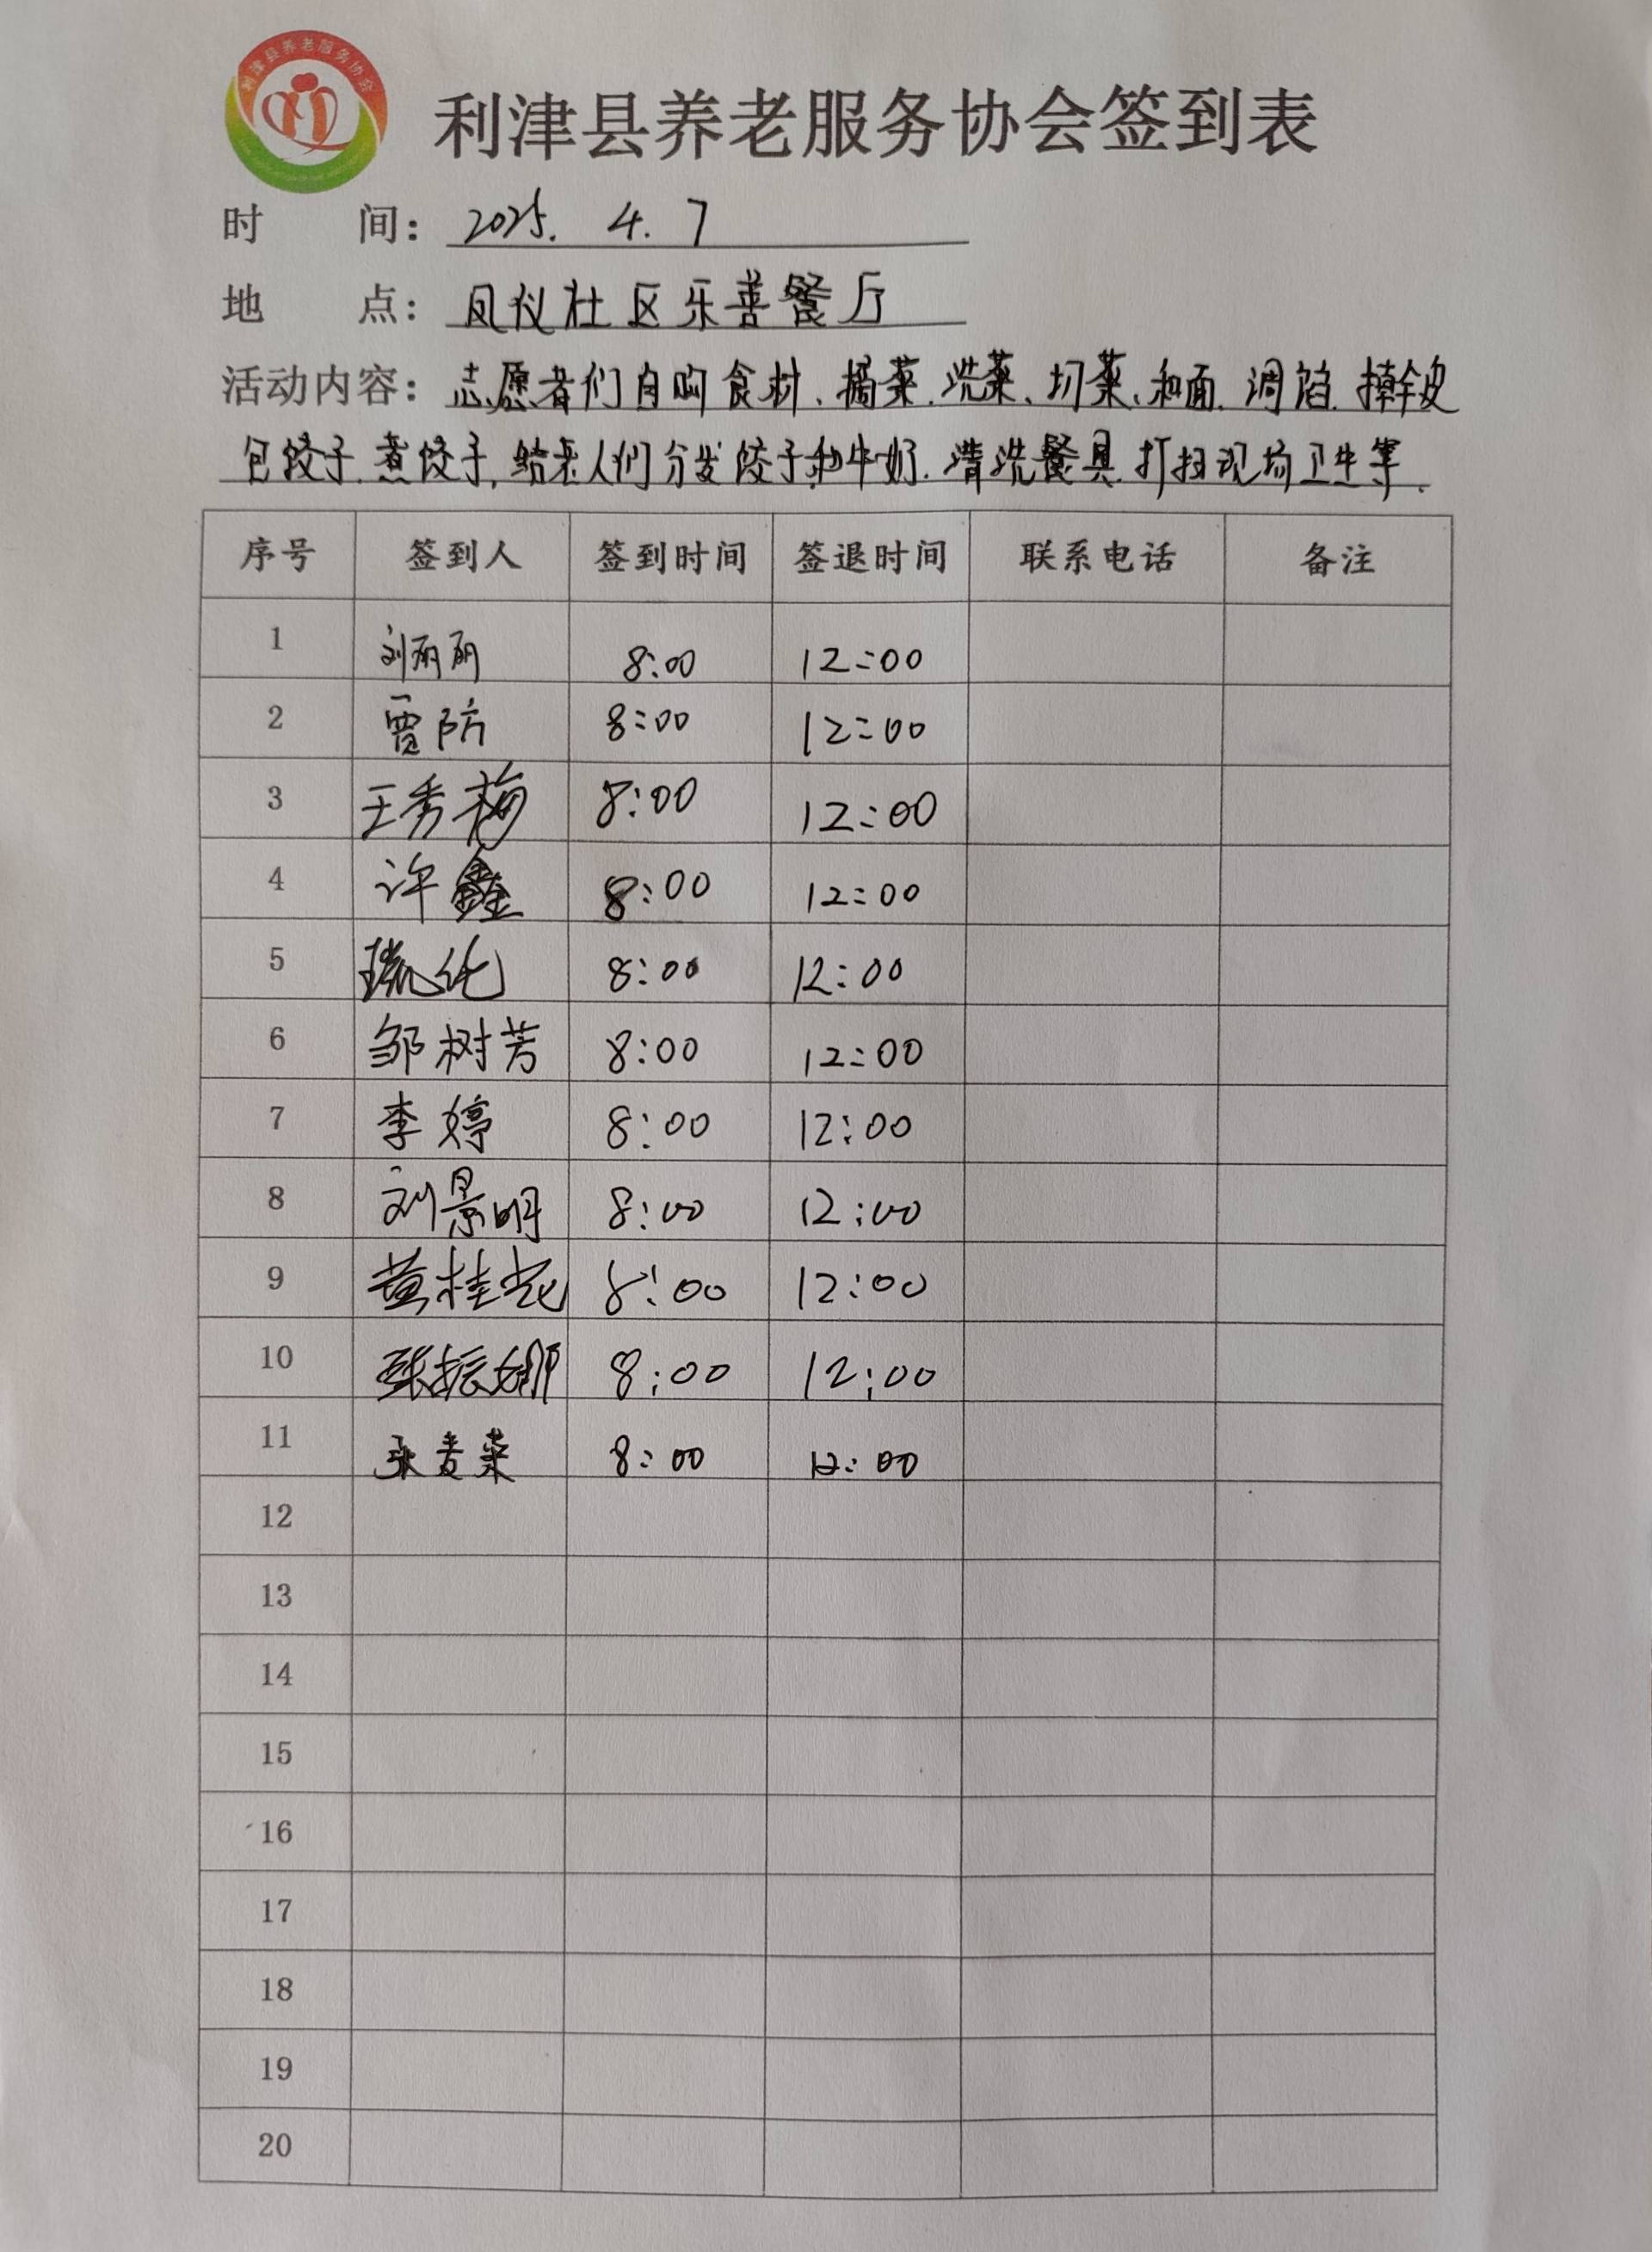 利津县养老服务协会
利津县养老服务协会签到表
时 间: 2025. 4. 7
地 点: 凤仪社区乐善餐厅
活动内容: 志愿者们自购食材、摘菜、洗菜、切菜、和面、调馅、擀皮
包饺子、煮饺子,给老人们分发饺子和牛奶、清洗餐具、打扫现场卫生等.
序号 签到人 签到时间 签退时间 联系电话 备注
1 刘丽丽 8:00 12:00
2 贾防 8:00 12:00
3 王秀梅 8:00 12:00
4 许鑫 8:00 12:00
5 8:00 12:00
6 邹树芳 8:00 12:00
7 李婷 8:00 12:00
8 刘景明 8:00 12:00
9 黄桂花 8:00 12:00
10 张振娜 8:00 12:00
11 8:00 12:00
12
13
14
15
16
17
18
19
20